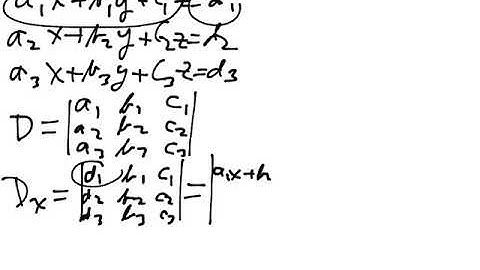 a₁x+b₁y+c₁z=d₁
a₂x+b₂y+c₂z=d₂
a₃x+b₃y+c₃z=d₃
D=|a₁ b₁ c₁|
|a₂ b₂ c₂|
|a₃ b₃ c₃|
Dₓ=|d₁ b₁ c₁|=|a₁x+b
|d₂ b₂ c₂|
|d₃ b₃ c₃|